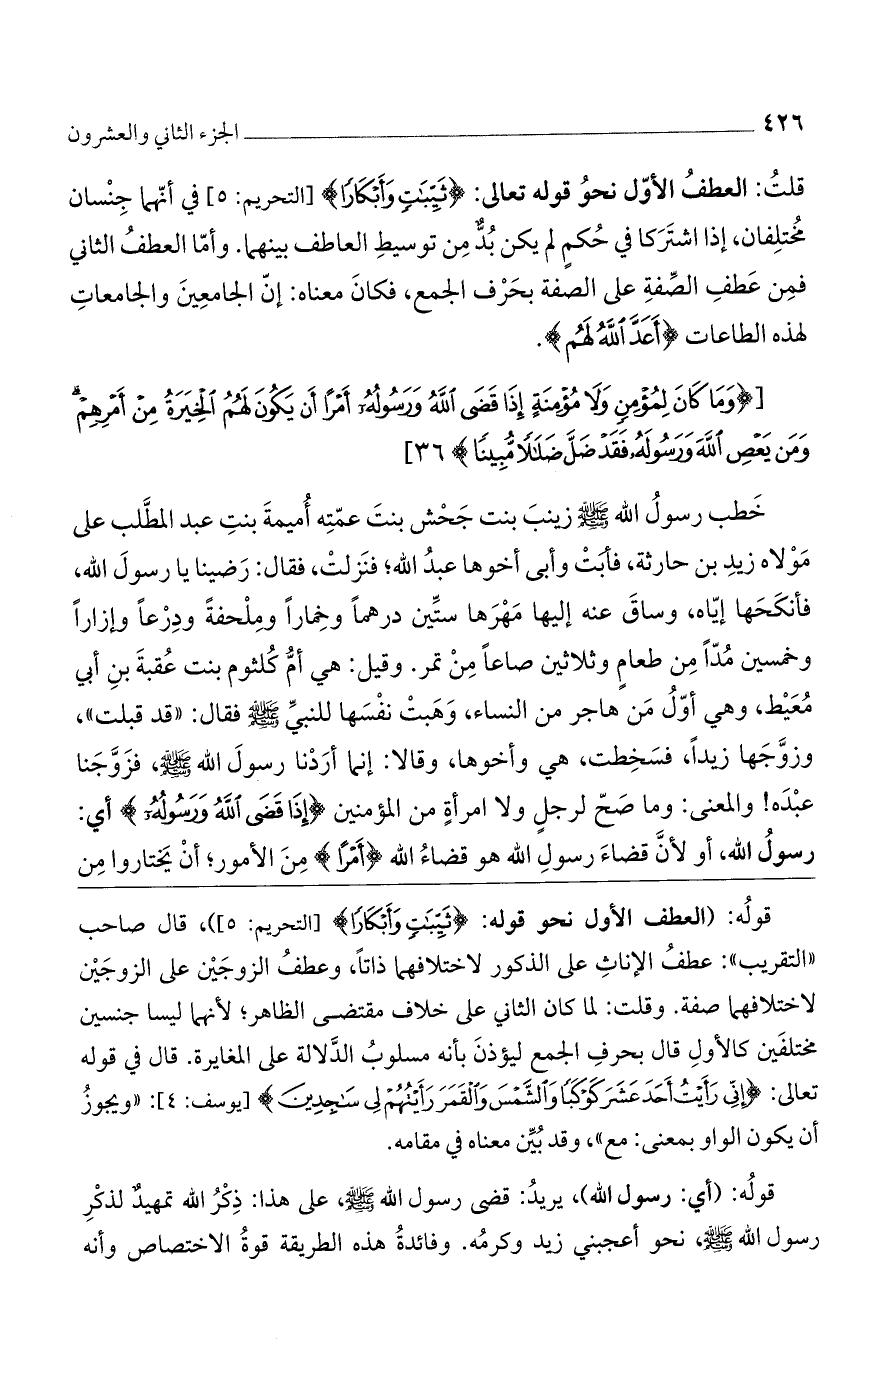 ٤٢٦ ــــــــــــــــــــــــــــــــــــــــــــــــــــــــــــ الجزء الثاني والعشرون
قلتُ: العطفُ الأوّل نحوُ قوله تعالى: ﴿ثَيِّبَٰتٍ وَأَبْكَارًا﴾ [التحريم: ٥] في أنّهما جِنْسان
مُختلِفان، إذا اشتَرَكا في حُكمٍ لم يكن بُدٌّ مِن توسيطِ العاطف بينهما. وأمّا العطفُ الثاني
فمِن عَطفِ الصِّفةِ على الصفة بحَرْف الجمع، فكانَ معناه: إنّ الجامعِينَ والجامعاتِ
لهذه الطاعات ﴿أَعَدَّ ٱللَّهُ لَهُم﴾.
[﴿وَمَا كَانَ لِمُؤْمِنٍ وَلَا مُؤْمِنَةٍ إِذَا قَضَى ٱللَّهُ وَرَسُولُهُۥٓ أَمْرًا أَن يَكُونَ لَهُمُ ٱلْخِيَرَةُ مِنْ أَمْرِهِمْ ۗ
وَمَن يَعْصِ ٱللَّهَ وَرَسُولَهُۥ فَقَدْ ضَلَّ ضَلَٰلًا مُّبِينًا﴾ ٣٦]
خَطب رسولُ الله ﷺ زينبَ بنت جَحْش بنتَ عمّتِه أُميمةَ بنتِ عبد المطَّلب على
مَوْلاه زيدِ بن حارثة، فأبَتْ وأبى أخوها عبدُ الله؛ فنَزلتْ، فقال: رَضينا يا رسولَ الله،
فأنكَحَها إيّاه، وساقَ عنه إليها مَهْرَها ستِّين درهماً وخِماراً ومِلْحفةً ودِرْعاً وإزاراً
وخمسين مُدّاً مِن طعامٍ وثلاثين صاعاً مِنْ تمر. وقيل: هي أمُّ كُلثوم بنت عُقبةَ بنِ أبي
مُعَيْط، وهي أوّلُ مَن هاجر من النساء، وَهَبتْ نفْسَها للنبيِّ ﷺ فقال: «قد قبلت»،
وزوَّجَها زيداً، فسَخِطت، هي وأخوها، وقالا: إنما أرَدْنا رسولَ الله ﷺ، فزَوَّجَنا
عبْدَه! والمعنى: وما صَحّ لرجلٍ ولا امرأةٍ من المؤمنين ﴿إِذَا قَضَى ٱللَّهُ وَرَسُولُهُۥٓ﴾ أي:
رسولُ الله، أو لأنَّ قضاءَ رسولِ الله هو قضاءُ الله ﴿أَمْرًا﴾ مِنَ الأمور؛ أنْ يَختاروا مِن
قولُه: (العطف الأول نحو قوله: ﴿ثَيِّبَٰتٍ وَأَبْكَارًا﴾ [التحريم: ٥])، قال صاحب
«التقريب»: عطفُ الإناثِ على الذكور لاختلافهما ذاتاً، وعطفُ الزوجَيْن على الزوجَيْن
لاختلافهما صفة. وقلت: لما كان الثاني على خلاف مقتضى الظاهر؛ لأنهما ليسا جنسين
مختلفَين كالأولِ قال بحرفِ الجمع ليؤذنَ بأنه مسلوبُ الدَّلالة على المغايرة. قال في قوله
تعالى: ﴿إِنِّي رَأَيْتُ أَحَدَ عَشَرَ كَوْكَبًا وَٱلشَّمْسَ وَٱلْقَمَرَ رَأَيْتُهُمْ لِي سَٰجِدِينَ﴾ [يوسف: ٤]: «ويجوزُ
أن يكون الواو بمعنى: مع»، وقد بُيِّن معناه في مقامه.
قولُه: (أي: رسول الله)، يريدُ: قضى رسول الله ﷺ، على هذا: ذِكْرُ الله تمهيدٌ لذكْرِ
رسول الله ﷺ، نحو أعجبني زيد وكرمُه. وفائدةُ هذه الطريقة قوةُ الاختصاص وأنه